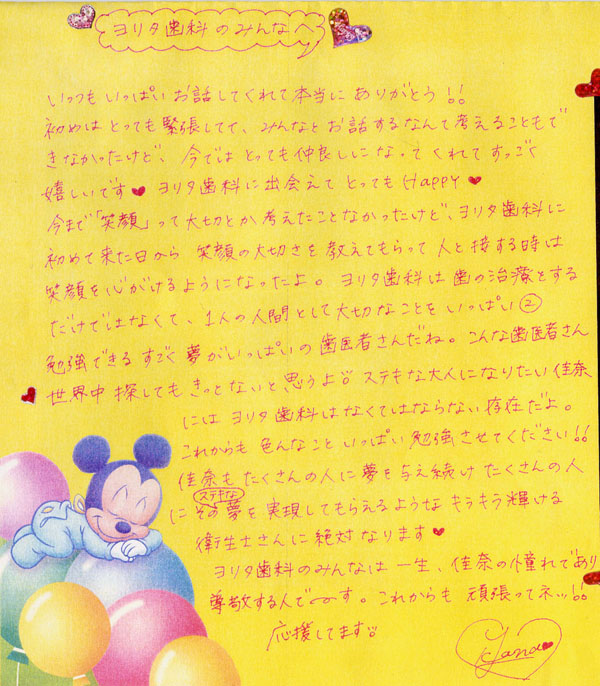 ヨリタ歯科のみんなへ
いつもいっぱいお話してくれて本当にありがとう!!
初めはとっても緊張してて、みんなとお話するなんて考えることもで
きなかったけど、今ではとっても仲良しになってくれてすっごく
嬉しいです♥ ヨリタ歯科に出会えてとってもHappy♥
今まで「笑顔」って大切とか考えたことなかったけど、ヨリタ歯科に
初めて来た日から笑顔の大切さを教えてもらって人と接する時は
笑顔を心がけるようになったよ。ヨリタ歯科は歯の治療をする
だけではなくて、1人の人間として大切なことをいっぱい②
勉強できるすごく夢がいっぱいの歯医者さんだね。こんな歯医者さん
世界中探してもきっとないと思うよ!! ステキな大人になりたい佳奈
にはヨリタ歯科はなくてはならない存在だよ。
これからも色んなこといっぱい勉強させてください!!
佳奈もたくさんの人に夢を与え続けたくさんの人
ステキな
にその夢を実現してもらえるようなキラキラ輝ける
衛生士さんに絶対なります♥
ヨリタ歯科のみんなは一生、佳奈の憧れであり
尊敬する人で〜す。これからも頑張ってネッ!!
応援してます!!